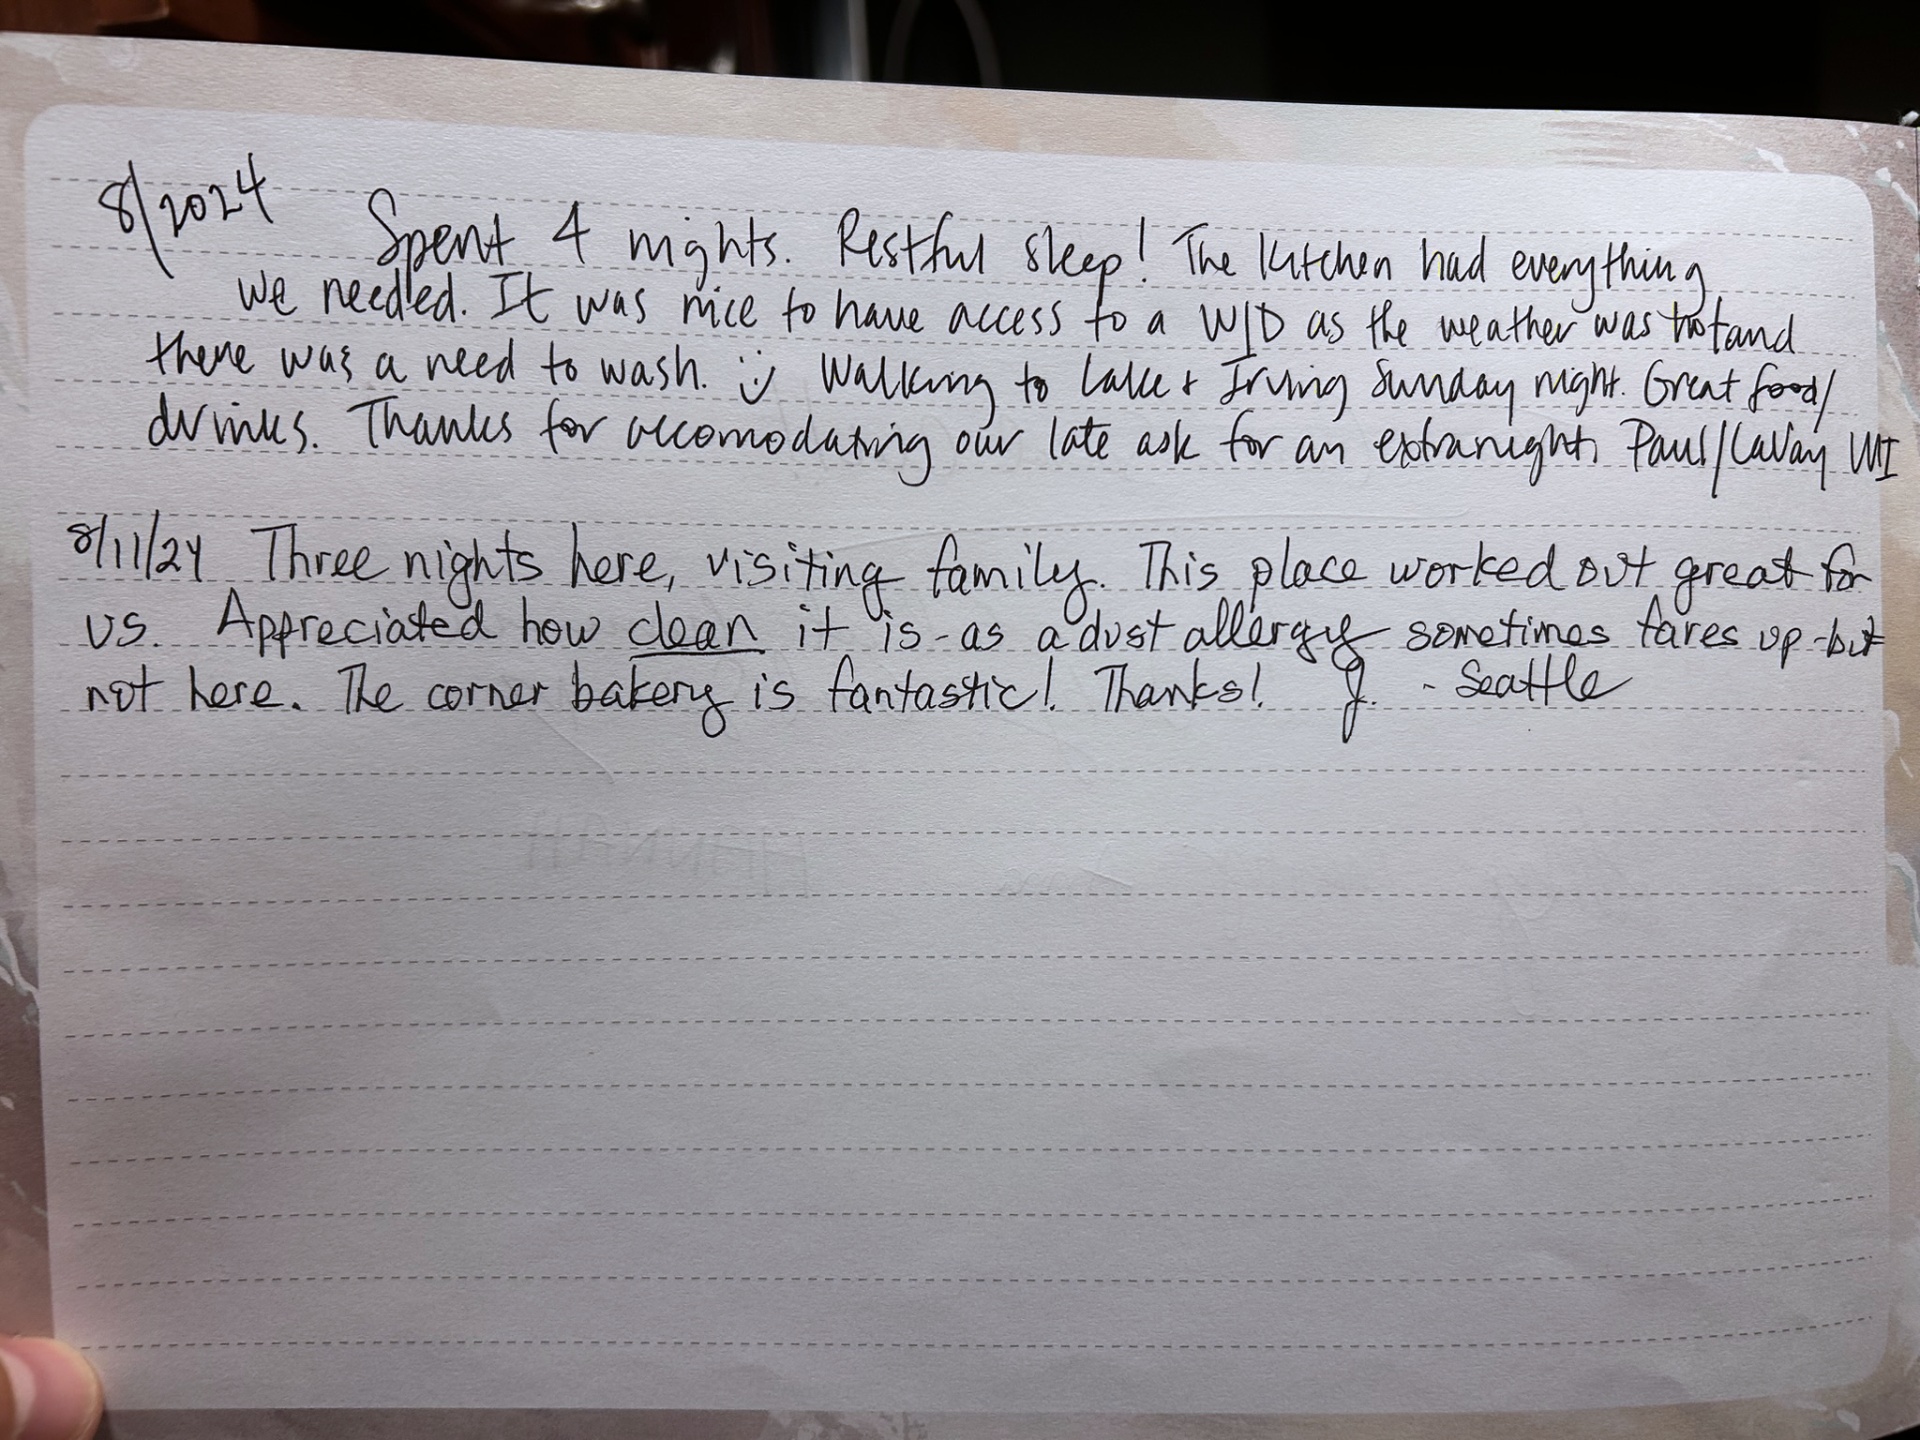 8/2024
Spent 4 nights. Restful sleep! The kitchen had everything
we needed. It was nice to have access to a W/D as the weather was hot and
there was a need to wash. :) Walking to Lake & Irving Sunday night. Great food/
drinks. Thanks for accomodating our late ask for an extra night. Paul/LaVay
8/11/24 Three nights here, visiting family. This place worked out great for
us. Appreciated how clean it is - as a dust allergy sometimes fares up - but
not here. The corner bakery is fantastic! Thanks! J. - Seattle